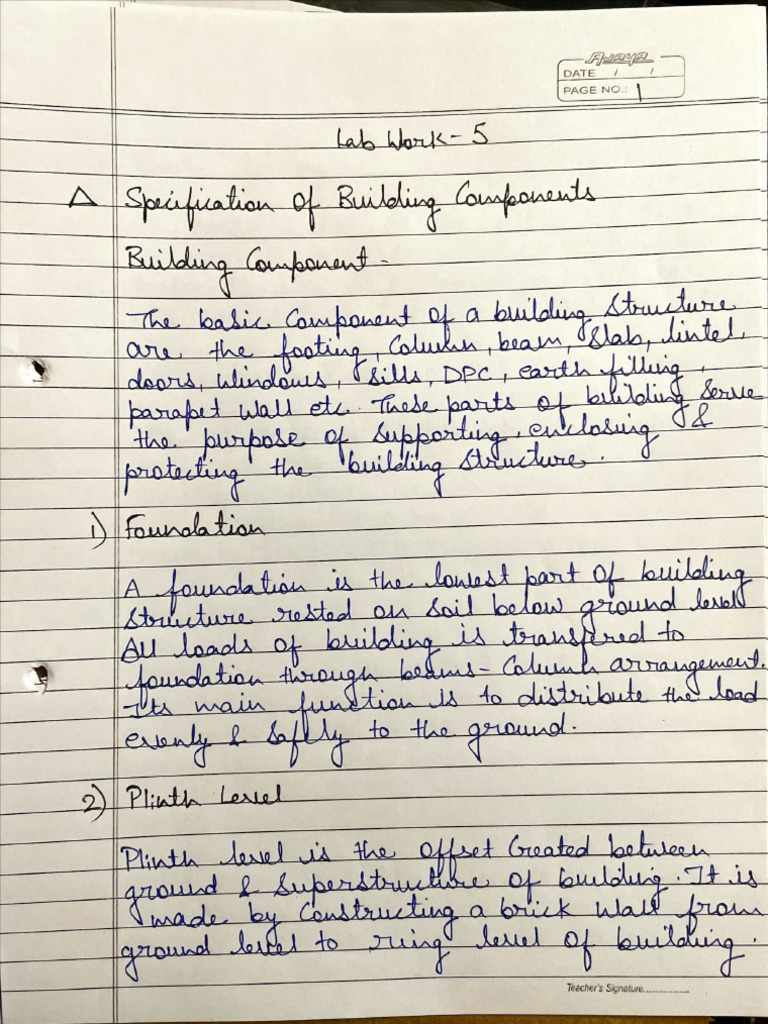 Ajaya
DATE / /
PAGE NO.: 1
Lab Work - 5
Δ Specification of Building Components
Building Component -
The basic Component of a building Structure
are the footing, Column, beam, Slab, lintel,
doors, windows, Sills, DPC, earth filling,
parapet wall etc. These parts of building Serve
the purpose of Supporting, enclosing &
protecting the building Structure.
1) Foundation
A foundation is the lowest part of building
Structure rested on Soil below ground level
All loads of building is transfired to
foundation through beams - Column arrangement.
Its main function is to distribute the load
evenly & Saflly to the ground.
2) Plinth Level
Plinth level is the offset Created between
ground & Superstructure of building. It is
made by Constructing a brick wall from
ground level to ring level of building.
Teacher's Signature..................